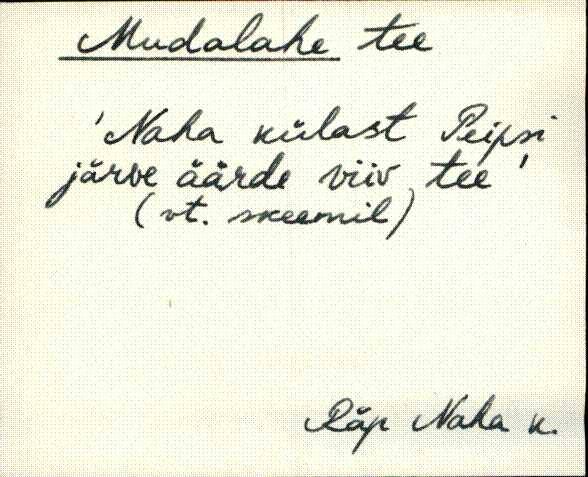 Mudalahe tee
'Naha külast Peipsi
järve äärde viiv tee'
(vt. skeemil)
Räp Naha k.